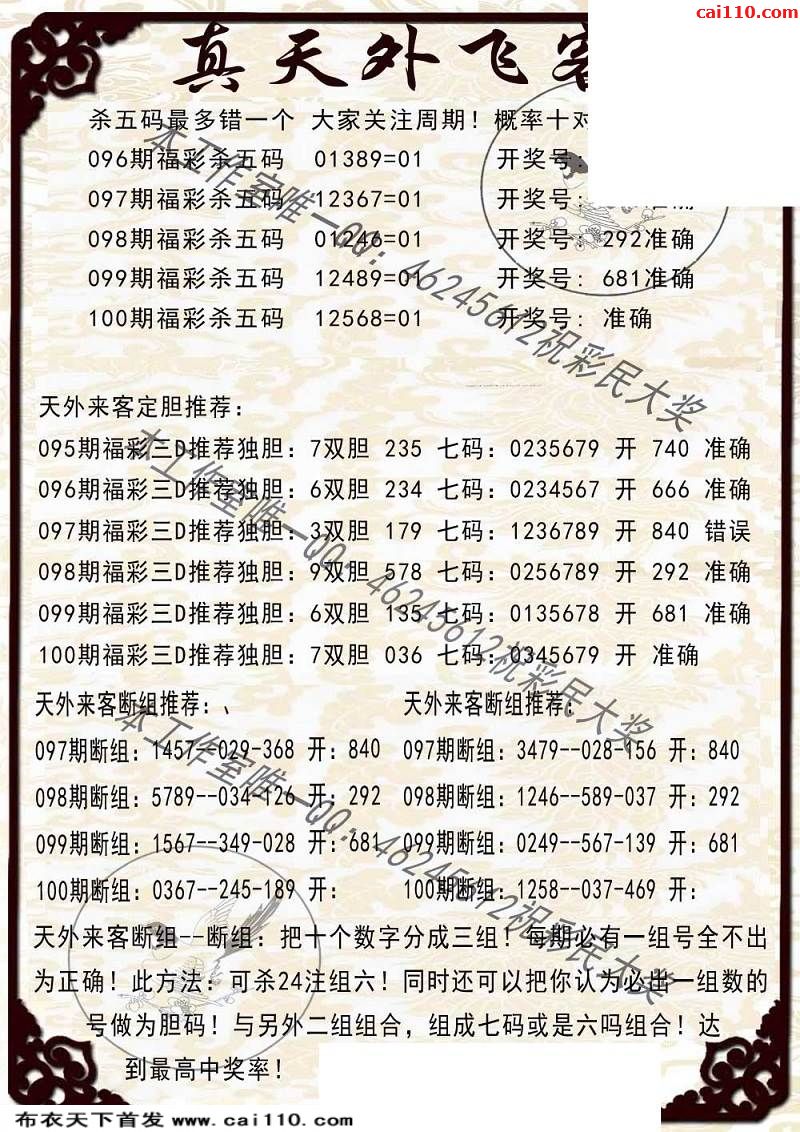 cai110.com
真天外飞客
杀五码最多错一个 大家关注周期！概率十对
096期福彩杀五码 01389=01 开奖号:
097期福彩杀五码 12367=01 开奖号: 准确
098期福彩杀五码 01246=01 开奖号: 292准确
099期福彩杀五码 12489=01 开奖号: 681准确
100期福彩杀五码 12568=01 开奖号: 准确
天外来客定胆推荐：
095期福彩三D推荐独胆：7双胆 235 七码：0235679 开 740 准确
096期福彩三D推荐独胆：6双胆 234 七码：0234567 开 666 准确
097期福彩三D推荐独胆：3双胆 179 七码：1236789 开 840 错误
098期福彩三D推荐独胆：9双胆 578 七码：0256789 开 292 准确
099期福彩三D推荐独胆：6双胆 135 七码：0135678 开 681 准确
100期福彩三D推荐独胆：7双胆 036 七码：0345679 开 准确
天外来客断组推荐：、 天外来客断组推荐：
097期断组：1457--029-368 开：840 097期断组：3479--028-156 开：840
098期断组：5789--034-126 开：292 098期断组：1246--589-037 开：292
099期断组：1567--349-028 开：681 099期断组：0249--567-139 开：681
100期断组：0367--245-189 开： 100期断组：1258--037-469 开：
天外来客断组--断组：把十个数字分成三组！每期必有一组号全不出
为正确！此方法：可杀24注组六！同时还可以把你认为必出一组数的
号做为胆码！与另外二组组合，组成七码或是六吗组合！达
到最高中奖率！
本工作室唯一QQ：46245612祝彩民大奖
本工作室唯一QQ：46245612祝彩民大奖
本工作室唯一QQ：46245612祝彩民大奖
布衣天下首发 www.cai110.com